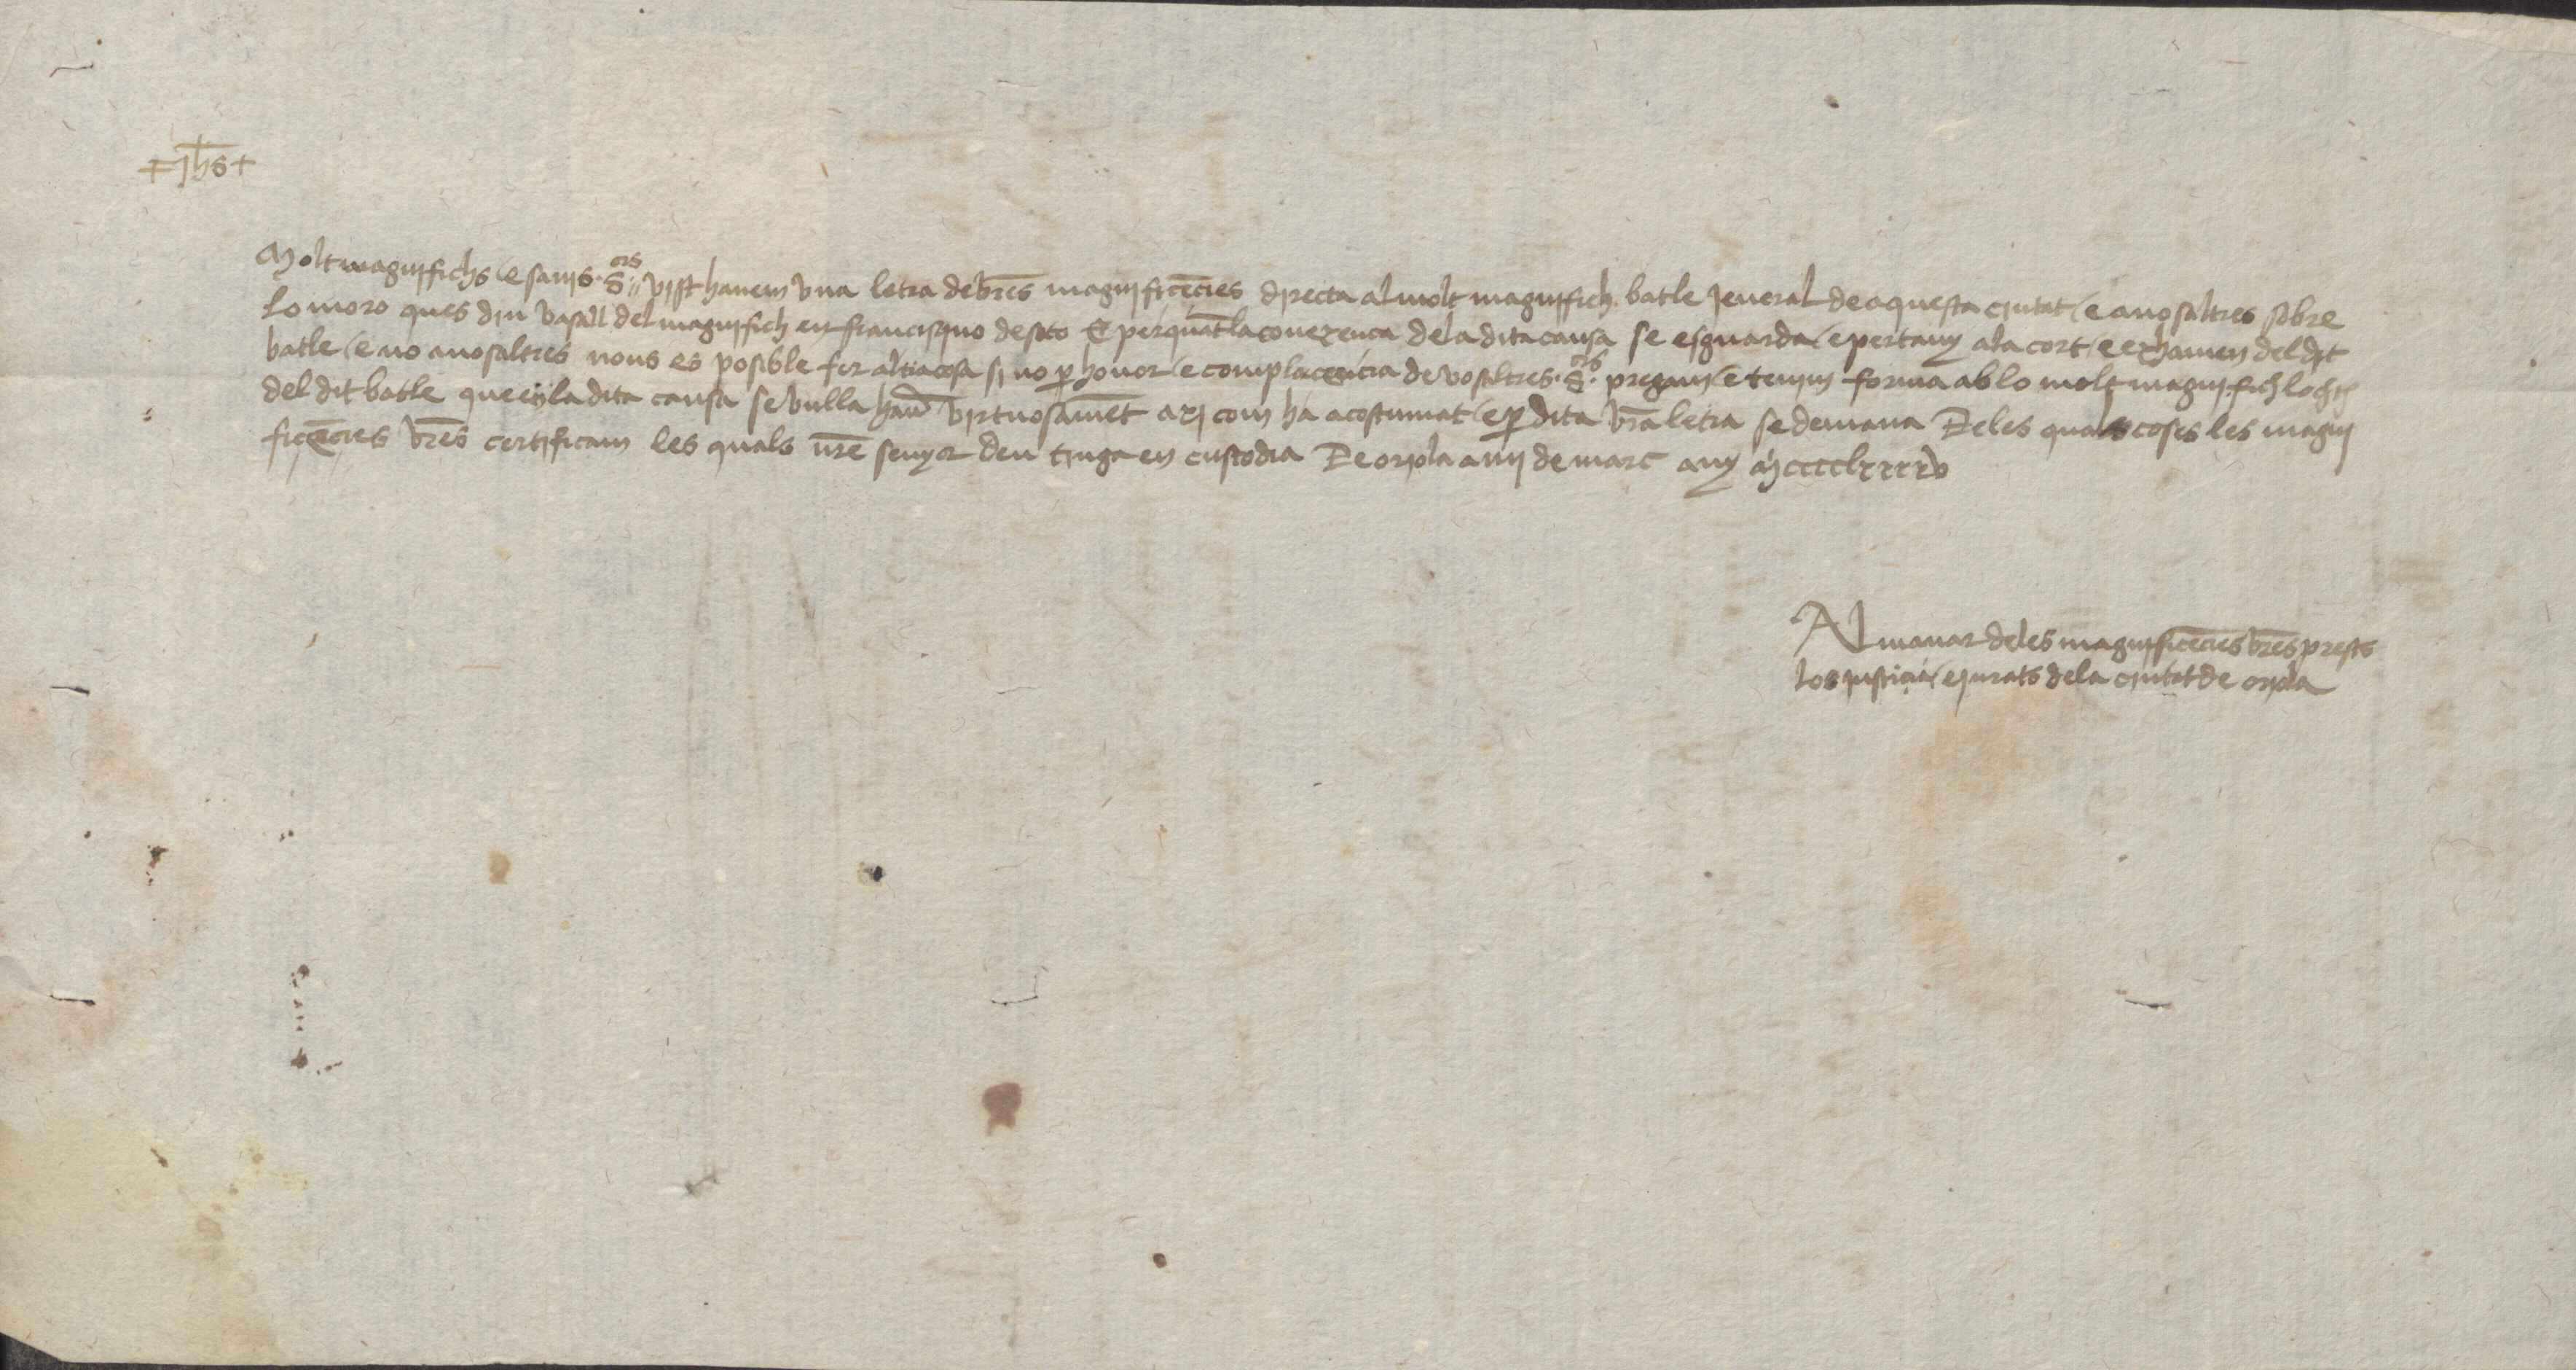 + Jhs +
Molt magnifichs e savis S.ors vist havem una letra de vr̄es magnificēcies directa al molt magniffich batle jeneral de aquesta ciutat e a nosaltres sobre
lo moro ques diu vasall del magnifich en francisquo de soto E per quāt la conexença de la dita causa se esguarda e pertany a la cort e exhamen del dit
batle e no a nosaltres nons es posible fer altra cosa si no p̱ honor e complacencia de vosaltres S.ors pregam e tenim forma ab lo molt magnifich loch.t
del dit batle que en la dita causa se vulla hau̅ virtuosamēt axi com ha acostumat e p̱ dita vr̄a letra se demana De les quals coses les magni
ficēcies vr̄es certificam les quals nr̄e senyor deu tinga en custodia De oriola a iiij de març any Mcccclxxxxv
Al manar de les magnificēcies vr̄es prests
los justicia e jurats de la ciutat de oriola